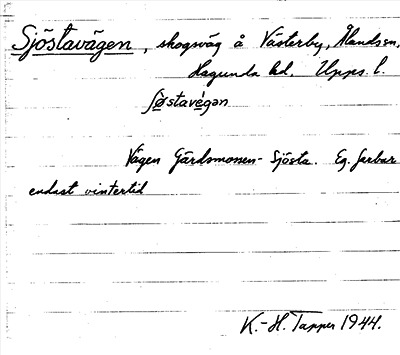 Sjöstavägen, skogsväg å Västerby, Ålandsn,
Hagunda hd. Upps. l.
ʃøstavégan
Vägen Gärdsmossen - Sjösta. Eg. farbar
endast vintertid
K.-H. Tapper 1944.